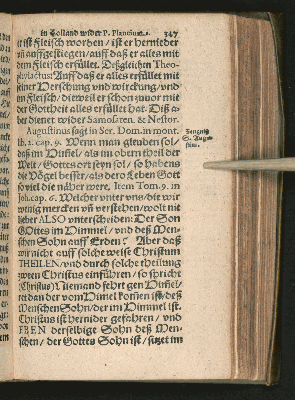 in Holland wider P. Plancium. 347
ist Fleisch worden / ist er hernieder
vñ auffgestiegen / auff daß er alles mit
dem Fleisch erfüllet. Deßgleichen Theo-
phylactus: Auff daß er alles erfüllet mit
seiner Herschung vnd wirckung / vnd
im Fleisch / dieweil er schon zuvor mit
der Gottheit alles erfüllet hat: Diß a-
ber dienet wider Samosaten. & Nestor.
Augustinus sagt in Ser. Dom. in mont.
lib. 2. cap. 9. Wenn man gleuben sol /
Zeugniß
S. Augu-
stini.
daß im Himmel / als im obern theil der
Welt / Gottes ort seyn sol / so habens
die Vögel besser / als dero Leben Gott
so viel die näher were. Item Tom. 9. in
Joh. cap. 6. Welcher vnter vns / die wir
wenig mercken vñ verstehen / wolt nit
lieber ALSO vnterscheiden: Der Son
GOttes im Himmel / vnd deß Men-
schen Sohn auff Erden? Aber daß
wir nicht auff solche weise Christum
THEILEN / vnd durch solche theilung
zween Christus einführen / so spricht
(Christus) Niemand fehrt gen Himel /
den dan der vom Himel komẽn ist / deß
Menschen Sohn / der im Himmel ist.
Christus ist hernider gefahren / vnd
EBEN derselbige Sohn deß Men-
schen / der Gottes Sohn ist / sitzet im